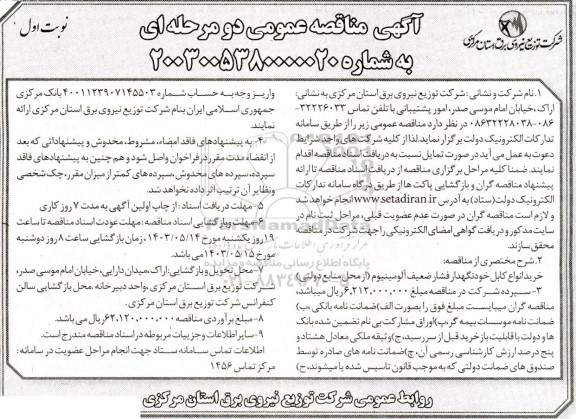 شرکت توزیع نیروی برق استان مرکزی
آگهی مناقصه عمومی دو مرحله ای
نوبت اول
به شماره ۲۰۰۳۰۰۵۳۸۰۰۰۰۰۲۰
۱. نام شرکت و نشانی: شرکت توزیع نیروی برق استان مرکزی به نشانی:
اراک، خیابان امام موسی صدر، امور پشتیبانی با تلفن تماس ۳۲۲۲۶۰۳۳-
۰۸۶ -۰۸۶۳۲۲۲۸۰۳۸ در نظر دارد مناقصه عمومی زیر را از طریق سامانه
تدارکات الکترونیک دولت برگزار نماید. لذا از کلیه شرکت های واجد شرایط
دعوت به عمل می آید در صورت تمایل نسبت به دریافت اسناد مناقصه اقدام
نمایند. ضمنا کلیه مراحل برگزاری مناقصه از دریافت اسناد مناقصه تا ارائه
پیشنهاد مناقصه گران و بازگشایی پاکت ها از طریق درگاه سامانه تدارکات
الکترونیک دولت (ستاد) به آدرس www.setadiran.ir انجام خواهد شد
و لازم است مناقصه گران در صورت عدم عضویت قبلی، مراحل ثبت نام در
سایت مذکور و دریافت گواهی امضای الکترونیکی را جهت شرکت در مناقصه
محقق سازند.
۲. شرح مختصری از مناقصه:
خرید انواع کابل خودنگهدار فشار ضعیف آلومینیوم (از محل منابع دولتی)
۳- سپرده شرکت در مناقصه مبلغ ۶,۲۱۲,۰۰۰,۰۰۰ ریال میباشد.
مناقصه گران میبایست مبلغ فوق را بصورت الف) ضمانت نامه بانکی، ب)
ضمانت نامه موسسات بیمه گر، پ) اوراق مشارکت بی نام تضمین شده بانک
ها و دولت با قابلیت بازخرید قبل از سررسید، ج) وثیقه ملکی معادل هشتاد و
پنج درصد ارزش کارشناسی رسمی آن، چ) ضمانت نامه های صادره توسط
صندوق های ضمانت دولتی که به موجب قانون تاسیس شده یا میشوند، ح)
واریز وجه به حساب شماره ۴۰۰۱۱۲۳۹۰۷۱۴۵۵۰۳ بانک مرکزی
جمهوری اسلامی ایران بنام شرکت توزیع نیروی برق استان مرکزی ارائه
نمایند
۴- به پیشنهادهای فاقد امضاء، مشروط، مخدوش و پیشنهاداتی که بعد
از انقضاء مدت مقرر در فراخوان واصل شود و هم چنین به پیشنهادهای فاقد
سپرده، سپرده های مخدوش، سپرده های کمتر از میزان مقرر، چک شخصی
ونظایر آن ترتیب اثر داده نخواهد شد.
۵- مهلت دریافت اسناد: از چاپ اولین آگهی به مدت ۷ روز کاری
۶- مهلت وبازگشایی اسناد مناقصه: مهلت عودت اسناد مناقصه تا ساعت
۱۹ روز یکشنبه مورخ ۱۴۰۳/۰۵/۱۴، زمان بازگشایی ساعت ۸ روز دوشنبه
مورخ ۱۴۰۳/۰۵/۱۵ می باشد.
۷- محل تحویل وبازگشایی: اراک، میدان دارایی، خیابان امام موسی صدر،
شرکت توزیع برق استان مرکزی، واحد دبیرخانه. محل بازگشایی سالن
کنفرانس شرکت توزیع برق استان مرکزی.
۸- مبلغ برآوردی مناقصه ۶۲,۱۲۰,۰۰۰,۰۰۰ ریال می باشد.
۹- سایر اطلاعات و جزییات مربوطه در اسناد مناقصه مندرج است.
اطلاعات تماس سامانه ستاد جهت انجام مراحل عضویت در سامانه:
مرکز تماس ۱۴۵۶
روابط عمومی شرکت توزیع نیروی برق استان مرکزی